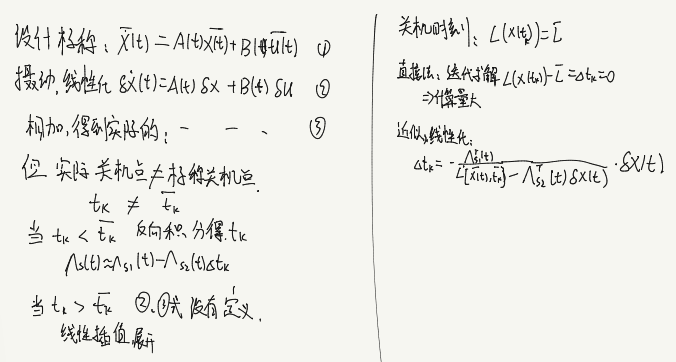 设计标称: Ẋ(t) = A(t)X̄(t) + B(t)ū(t) ①
摄动,线性化 δẋ(t)=A(t) δx + B(t) δu ②
相加,得到实际的: - - - ③
但 实际关机点≠标称关机点.
tₖ ≠ t̄ₖ
当 tₖ < t̄ₖ 反向积分得 tₖ
Λs(t)≈Λs₁(t)-Λs₂(t)Δtₖ
当 tₖ > t̄ₖ ②,③式 没有定义.
线性插值展开
关机时刻: L(x(tₖ))=L̄
直接法: 迭代求解 L(x(tₖ))-L̄ = Δtₖ=0
⇒计算量大
近似线性化:
Δtₖ = - Λᵀs₁(t) / (L̇[x̄(t), t̄ₖ] - Λᵀs₂(t) δX(t)) · δX(t)